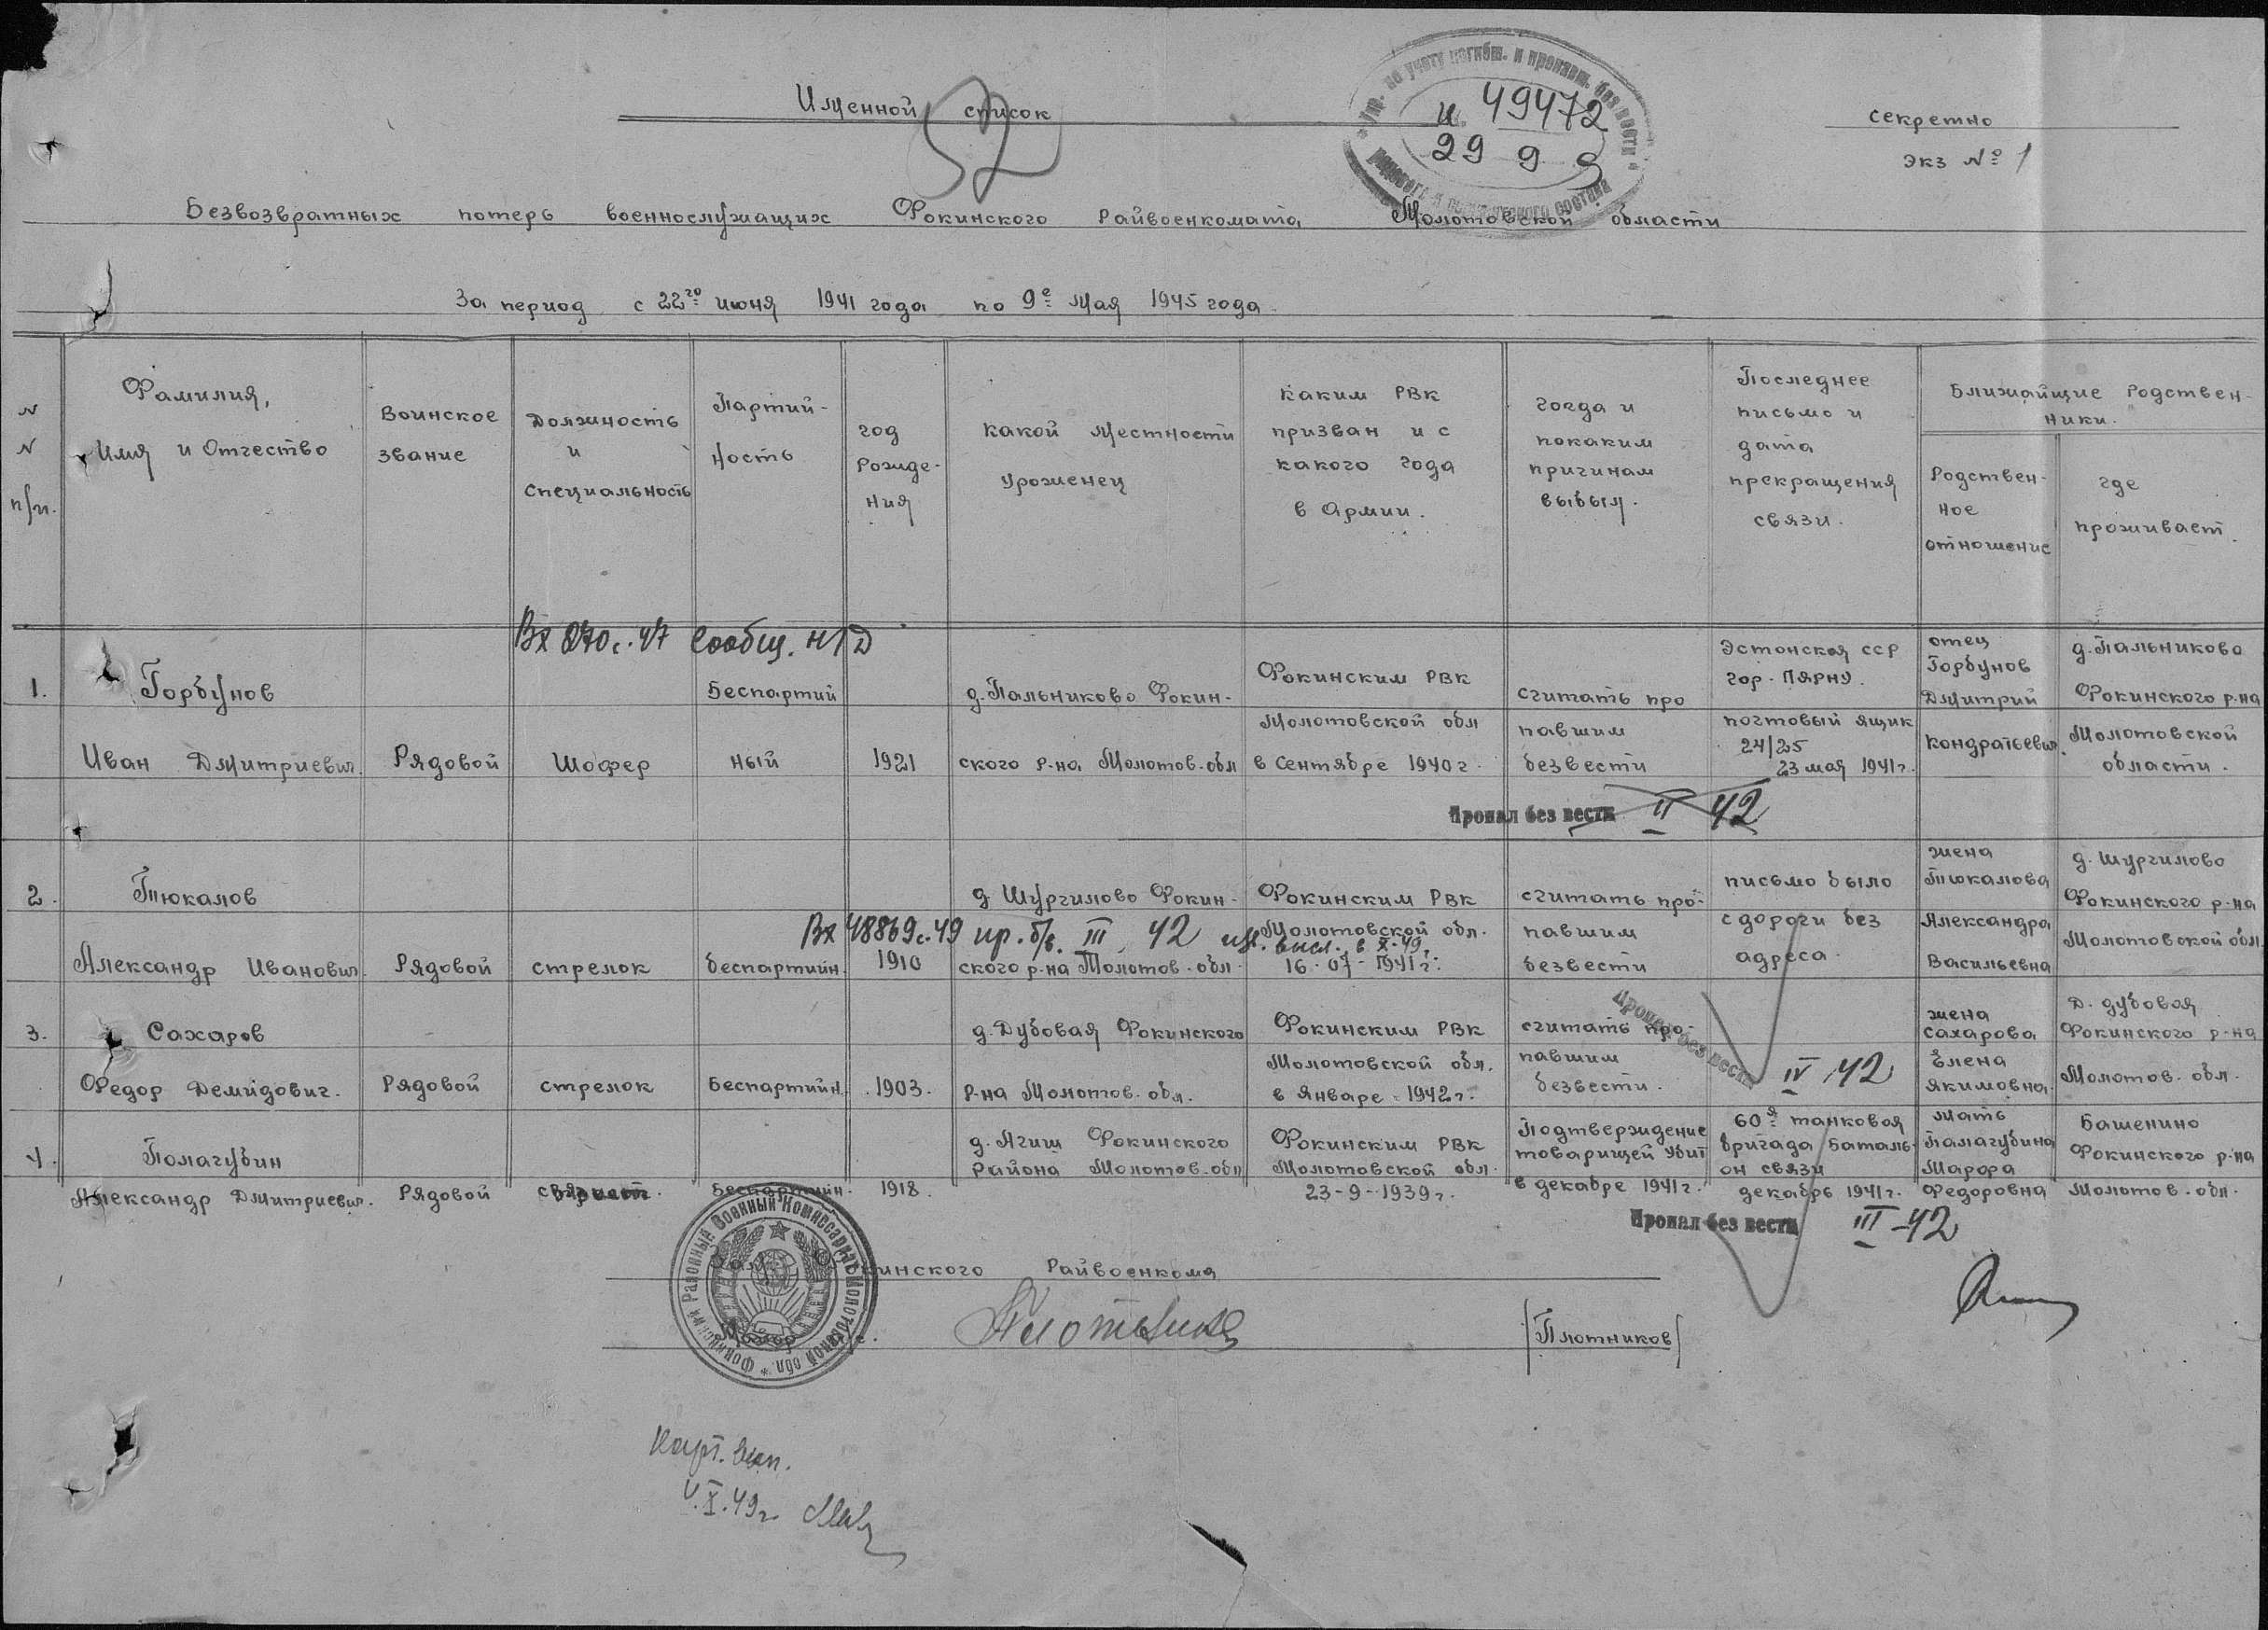 Именной список
Секретно
экз № 1
52
Упр. по учету погибш. и пропавш. без вести
рядового и состава
и 49472
29 9 9
Безвозвратных потерь военнослужащих Фокинского Райвоенкомата Молотовской области
За период с 22го июня 1941 года по 9е мая 1945 года
N N п/п.
Фамилия, Имя и Отчество
Воинское звание
Должность и специальность
Партий-ность
год рожде-ния
какой местности уроженец
каким РВК призван и с какого года в Армии.
когда и по каким причинам выбыл.
Последнее письмо и дата прекращения связи.
Ближайщие Родствен-ники.
Родствен-ное отношение
где проживает.
Вх 270с.47 сообщ.
1.
Горбунов
Иван Дмитриевич.
Рядовой
Шофер
Беспартий
ный
1921
д. Пальниково Фокин-
ского р-на Молотов. обл
Фокинским РВК
Молотовской обл
в Сентябре 1940г.
считать про
павшим
безвести
Эстонская ССР
гор. Пярну.
почтовый ящик
24/25
23 мая 1941г.
отец
Горбунов
Дмитрий
Кондратьевич.
д. Пальниково
Фокинского р-на
Молотовской
области.
Пропал без вести II 42
2.
Тюкалов
Александр Иванович.
Рядовой
стрелок
беспартийн.
1910
д. Шургилово Фокин-
ского р-на Молотов. обл.
Фокинским РВК
Молотовской обл.
16-07-1941г.
считать про-
павшим
безвести
письмо было
с дороги без
адреса.
жена
Тюкалова
Александра
Васильевна
д. Шургилово
Фокинского р-на
Молотовской обл.
Вх 48869с.49 пр. б/в. III 42 в X-49.
3.
Сахаров
Федор Демидович.
Рядовой
стрелок
Беспартийн.
1903.
д. Дубовая Фокинского
р-на Молотов. обл.
Фокинским РВК
Молотовской обл.
в Январе 1942г.
считать про-
павшим
безвести.
Пропал без вести IV 42
жена
Сахарова
Елена
Якимовна.
Д. Дубовая
Фокинского р-на
Молотов. обл.
4.
Полагубин
Александр Дмитриевич.
Рядовой
связист.
Беспартийн.
1918.
д. Агиш Фокинского
Района Молотов. обл
Фокинским РВК
Молотовской обл.
23-9-1939г.
Подтверждение
товарищей убит
в декабре 1941г.
60я танковая
бригада баталь-
он связи
декабрь 1941г.
мать
Палагубина
Марфа
Федоровна
Башенино
Фокинского р-на
Молотов. обл.
Пропал без вести III-42
Фокинский Районный Военный Комиссариат Молотовской обл.
Фокинского Райвоенкома
Майор
Плотников
/Плотников/
Карт.
V.X.49г.